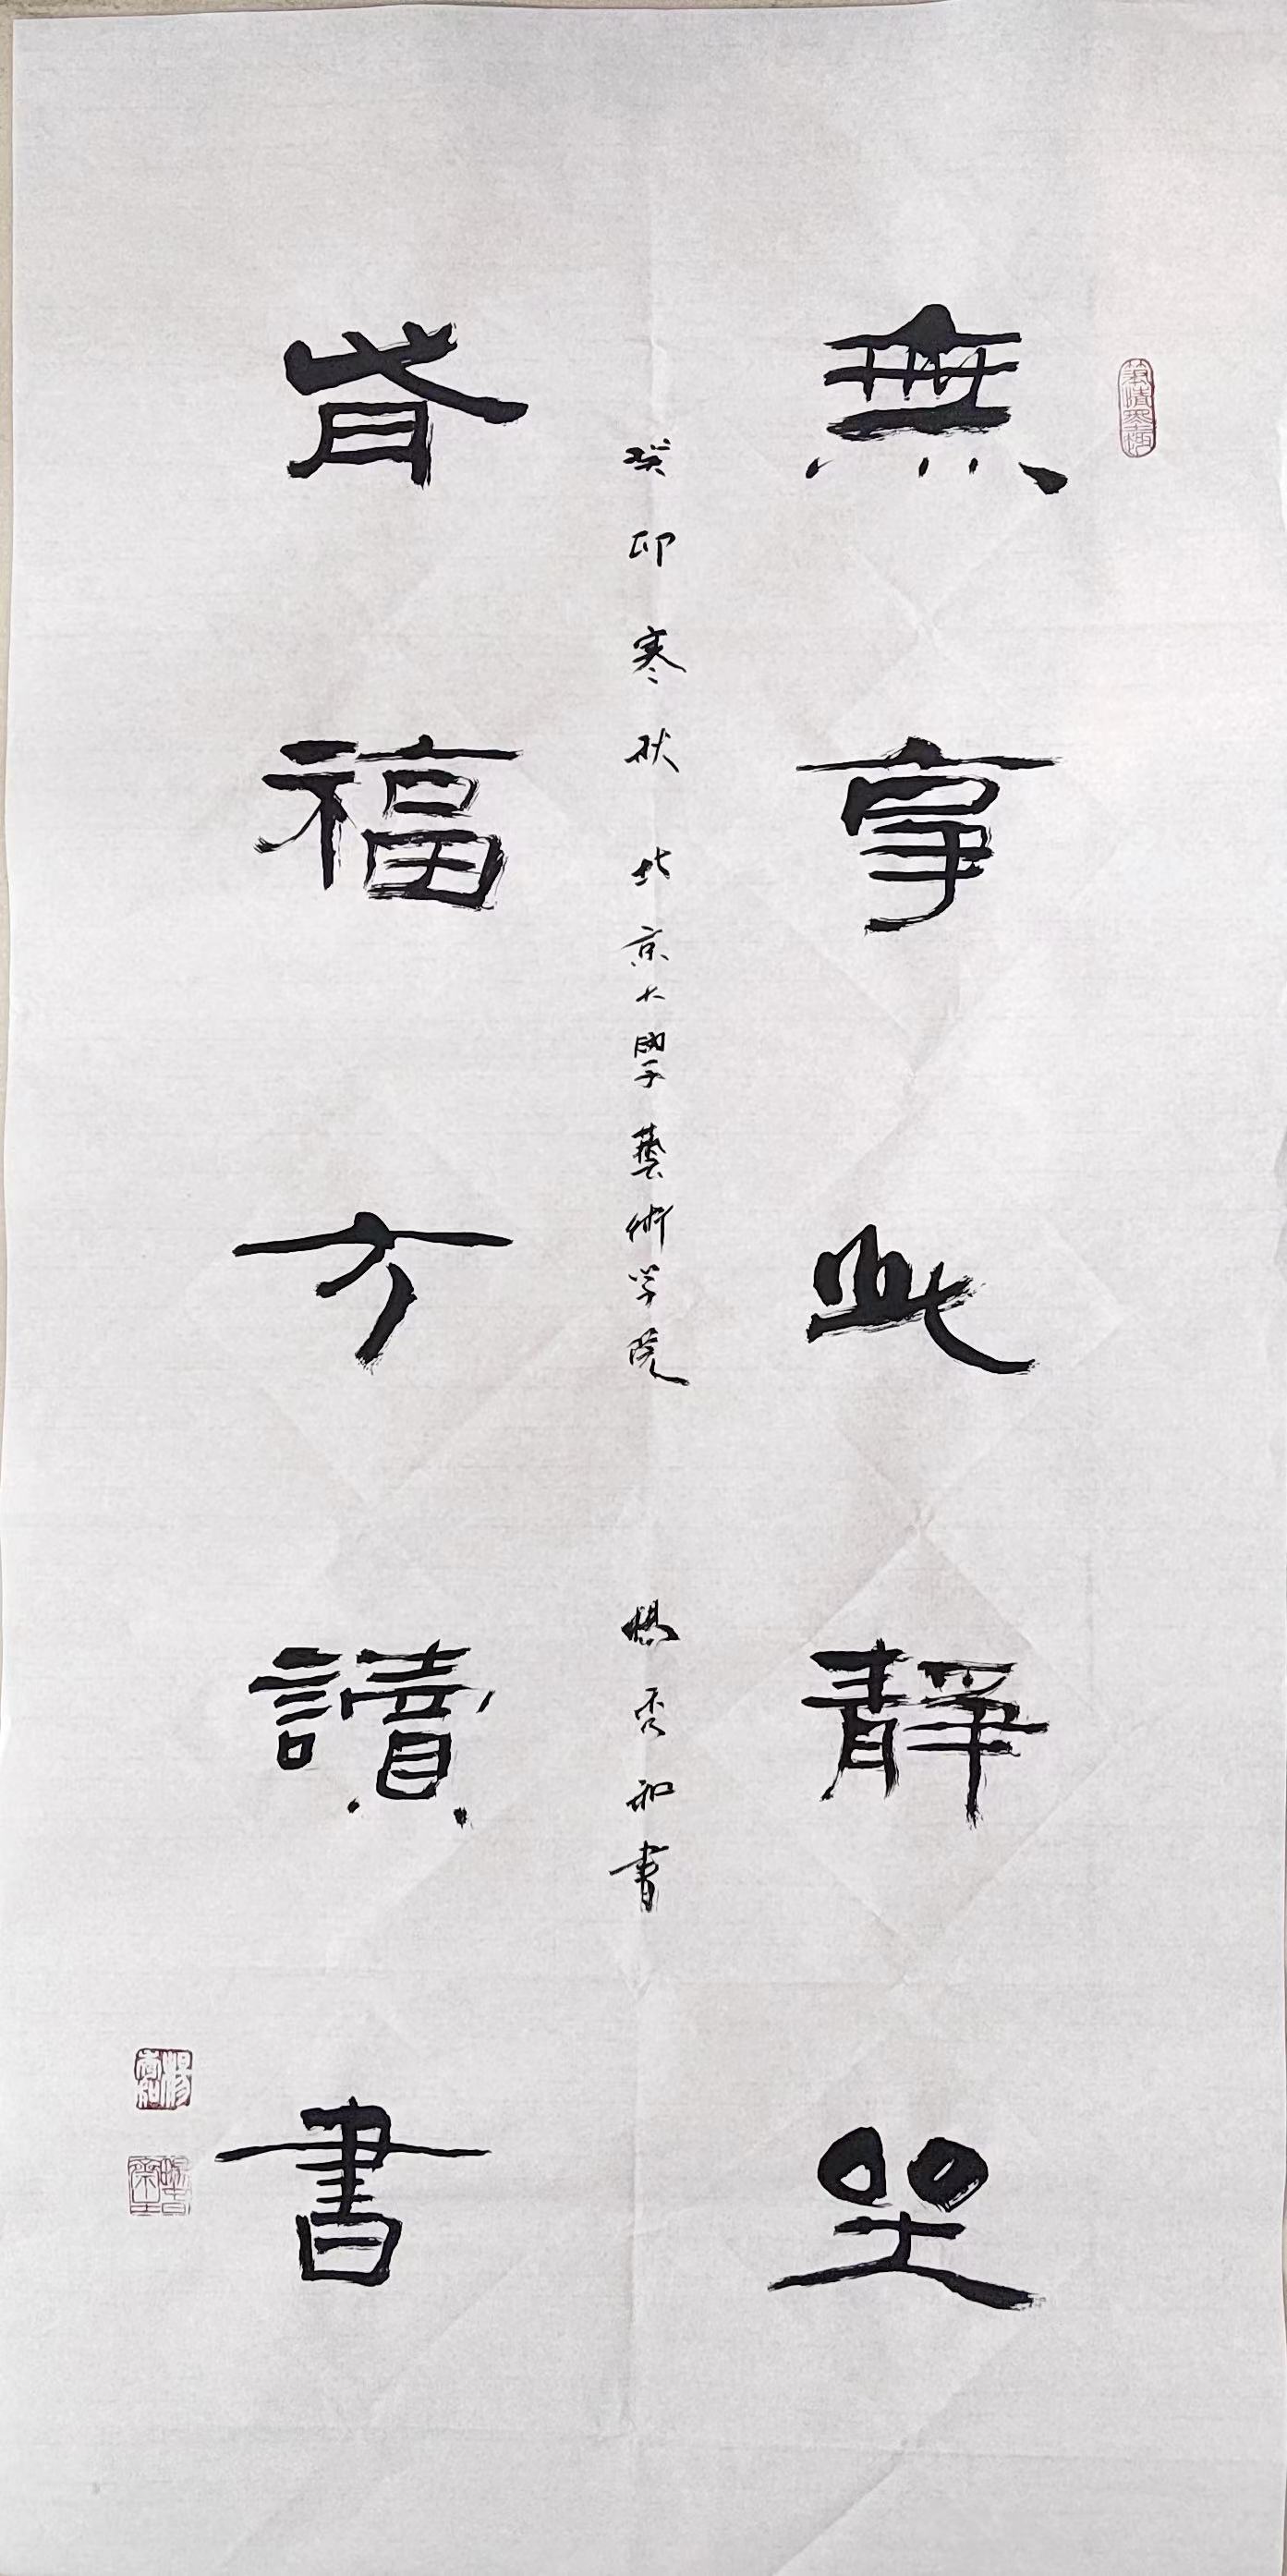 無事此靜坐
癸卯寒秋北京大學藝術学院 楊和書
有福方讀書